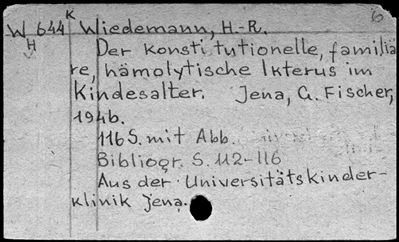 K 6
W 644 Wiedemann, H.-R.
H Der konstitutionelle, familiä
re, hämolytische Ikterus im
Kindesalter. Jena, G. Fischer,
1946.
116 S. mit Abb.
Bibliogr. S. 112-116
Aus der Universitätskinder-
klinik Jena.